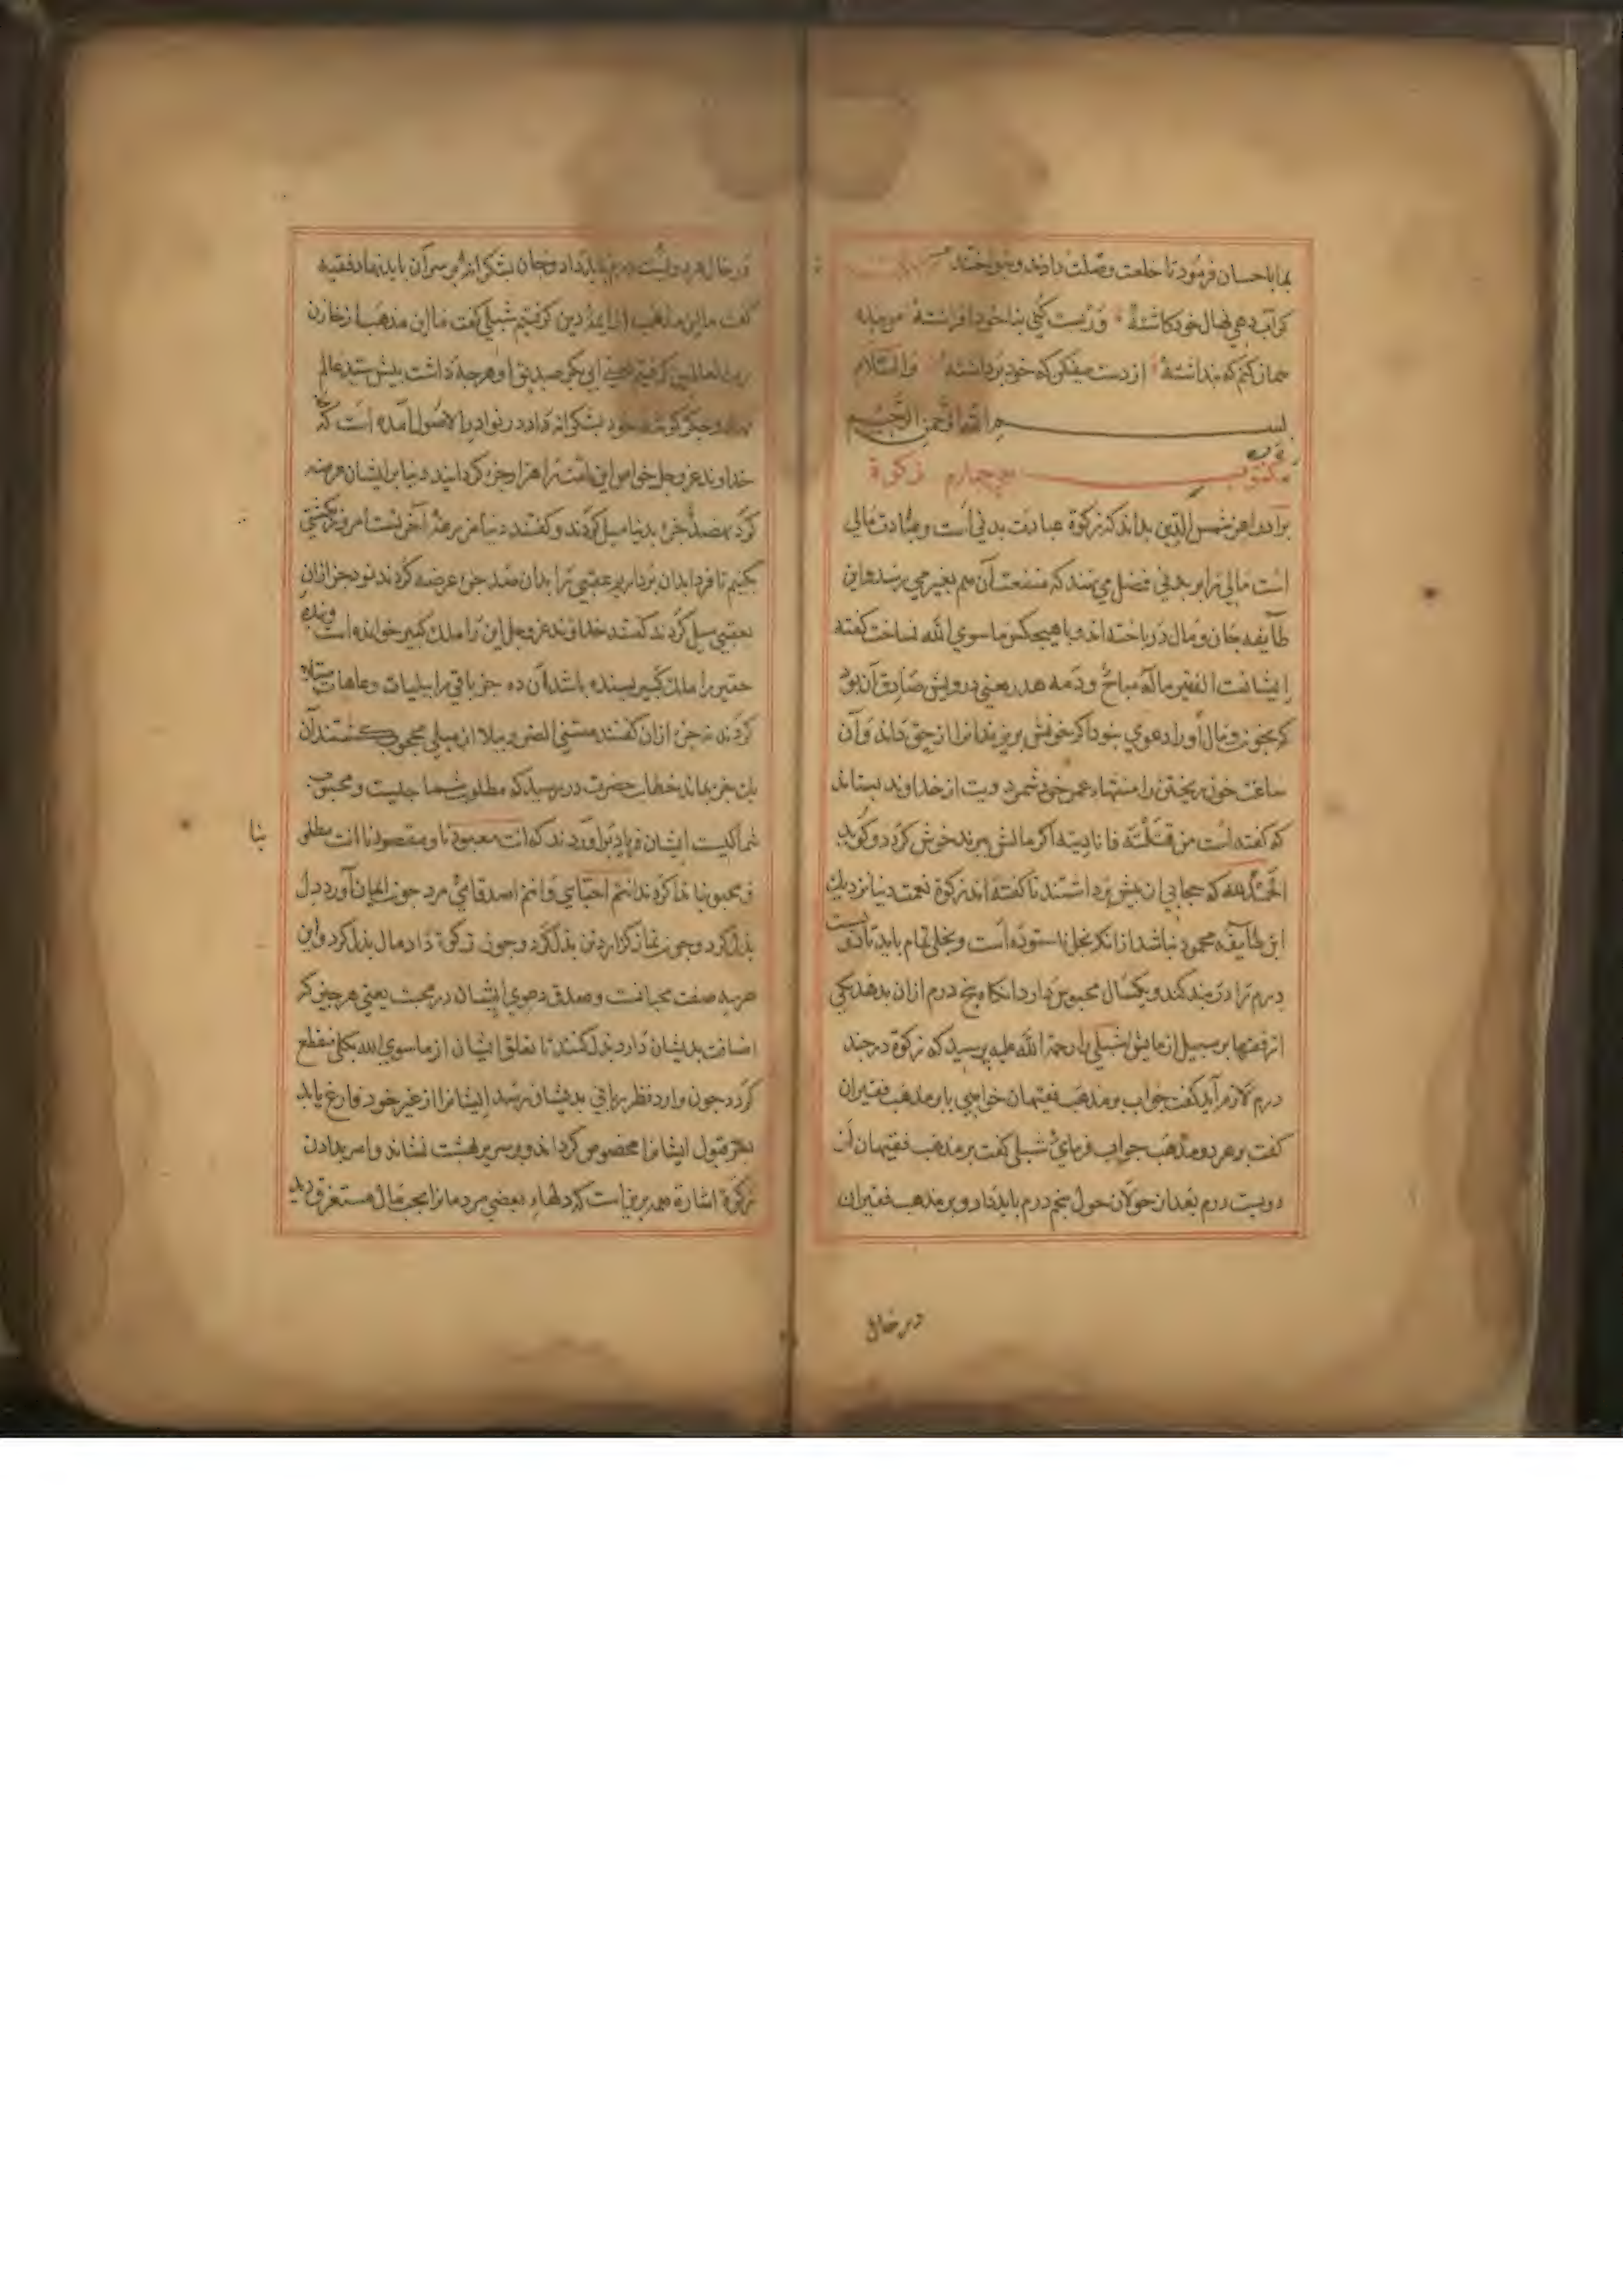 بما باحسان فرمود تا خلعت وصلت دادند و بنواختند
کر آب دهی نهال خود کاشتهٔ ور بست کنی بنا خود افراشتهٔ من بنده
همانم که پنداشتهٔ از دست میفکن که خود برداشتهٔ والسلام
بسم الله الرحمن الرحیم
مکتوب سی چهارم زکوة
برادر اعز شمس الدین بداند که زکوة عبادت بدنی است و عبادت مالی
است مالی را بر بدنی فضل می نهند که منفعت آن هم بغیر می رسد و این
طایفه جان و مال درباخته اند و با هیچکس ماسوی الله نساخت گفته
ایشانست الفقیر ماله مباح و دمه هدر یعنی درویش صادق آن بود
که بخون و مال او را دعوی نبود اگر خونش بریزند انرا از حق داند و آن
ساعت خون ریختن را منتهاء عمر خود شمرد دیت از خداوند بستاند
که گفته است من قتلته فانا دیته اگر مالش ببرند خوش گردد و گوید
الحمد لله که حجابی از پیش برداشتند تا گفته اند زکوة نعمت دنیا نزدیک
این طایفه محمود نباشد از انکه بخل ناستوده است و بخلی تمام باید تا دویست
درم را در بند کند و یکسال محبوس دارد انگاه پنج درم ازان بدهد یکی
از فقها بر سبیل ازمایش شبلی را رحمة الله علیه پرسید که زکوة در چند
درم لازم آید گفت جواب بر مذهب فقیهان خواهی یا بر مذهب فقیران
گفت بر هر دو مذهب جواب فرمای شبلی گفت بر مذهب فقیهان از
دویست درم بعد از حولان حول پنج درم باید داد و بر مذهب فقیران
در حال
در حال هر دویست درم باید داد و جان بشکرانه بر سر آن باید نهاد فقیه
گفت ما این مذهب از ایمهٔ دین گرفتیم شبلی گفت ما این مذهب از
رب العالمین گرفتیم یعنی ابی بکر صدیق او هر چه داشت پیش سید عالم
نهاد و جگر گوشهٔ خود بشکرانه داد در نوادر الاصول آمده است که
خداوند عز وجل خواص این امت را هزار جزء گردانید دنیا بر ایشان عرضه
کرد نهصد جزء بدنیا میل کردند و گفتند دنیا مزرعة آخرتست امروز کشتی
بکنیم تا فردا بدان برداریم عقبی را بدان صد جزء عرضه کردند نود جز ازان
بعقبی میل کردند گفتند خداوند عز وجل این را ملک کبیر خوانده است و بنده
حقیر را ملک کبیر بسنده باشد آن ده جز باقی را ببلیات و عاهات مبتلا
کردند نه جزء ازان گفتند مسنی الضر و ببلا از مبلی محجوب گشتند آن
یک جز بماند خطاب حضرت در رسید که مطلوب شما چیست و محبوب
شما کیست ایشان فریاد برآوردند که انت معبودنا و مقصودنا انت مطلو
بنا
و محبوبنا ندا کردند انتم احبّای و انتم اصدقائی مرد چون ایمان آورد دل
بذل کرد و چون نماز گزارد تن بذل کرد و چون زکوة داد مال بذل کرد و این
هر سه صفت محبانست و صدق دعوی ایشان در محبت یعنی هر چیز که
اضافت بدیشان دارد بذل کنند تا تعلق ایشان از ماسوی الله بکلی منقطع
گردد چون وارد نظر ربانی بدیشان رسد ایشانرا از غیر خود فارغ یابد
بعز قبول ایشانرا مخصوص گرداند و بر سریر بهشت نشاند و امر بدادن
زکوة اشارة هم برین است که دلهاء بعضی مردمانرا بحب مال مستغرق دید